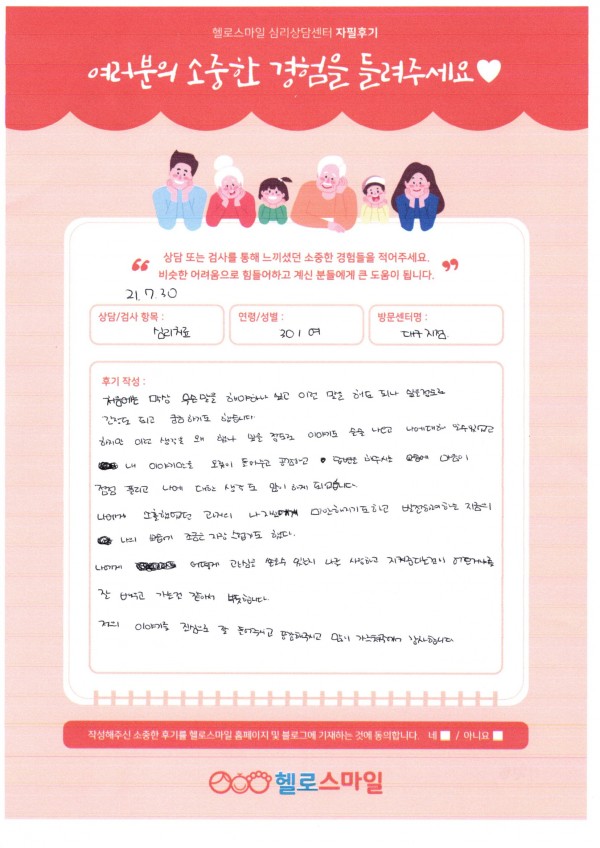 헬로스마일 심리상담센터 자필후기
여러분의 소중한 경험을 들려주세요
“ 상담 또는 검사를 통해 느끼셨던 소중한 경험들을 적어주세요.
비슷한 어려움으로 힘들어하고 계신 분들에게 큰 도움이 됩니다. ”
21.7.30
상담/검사 항목 : 심리치료
연령/성별 : 30 / 여
방문센터명 : 대구지점.
후기 작성 :
처음에는 막상 무슨말을 해야하나 싶고 이런 말을 해도 되나 싶은정도로
긴장도 되고 궁금하기도 했습니다.
하지만 이런 생각을 왜 했나 싶을 정도로 이야기도 술술 나오고 나에대해 알수있었고
내 이야기를 오롯이 들어주고 공감하고 답변을 해주시는 모습에 마음이
점점 풀리고 나에 대한 생각도 많이 하게 되었습니다.
나에게 소홀했었던 과거의 나 자신에게 미안해지기도하고 발전하려하는 지금의
나의 모습이 조금은 자랑스럽기도 했다.
나에게 어떻게 관심을 쏟을수 있는지 나를 사랑하고 지켜준다는것이 어떤거나를
잘 배우고 가는것 같아서 뿌듯합니다.
저의 이야기를 진심으로 잘 들어주시고 공감해주시고 감사합니다
작성해주신 소중한 후기를 헬로스마일 홈페이지 및 블로그에 기재하는 것에 동의합니다. 네 / 아니요
헬로스마일